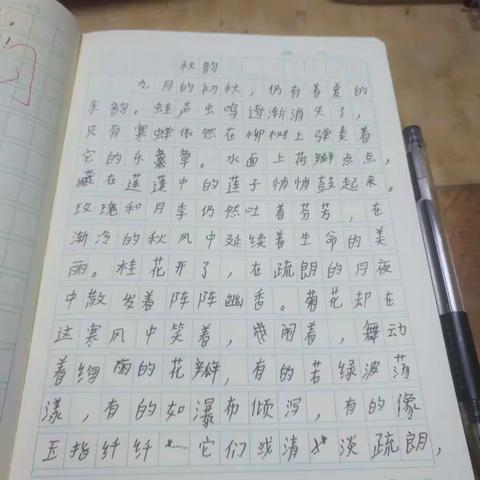 秋韵
九月的初秋，仍有着夏的
余韵。蛙声虫鸣逐渐消失了，
只有寒蝉依然在柳树上弹奏着
它的乐章。水面上荷瓣点点，
藏在莲蓬中的莲子悄悄鼓起来。
玫瑰和月季仍然吐着芬芳，在
渐冷的秋风中延续着生命的美
丽。桂花开了，在疏朗的月夜
中散发着阵阵幽香。菊花却在
这寒风中笑着，闹着，舞动
着绚丽的花瓣，有的若绿波荡
漾，有的如瀑布倾泻，有的像
玉指纤纤……它们或清淡疏朗，